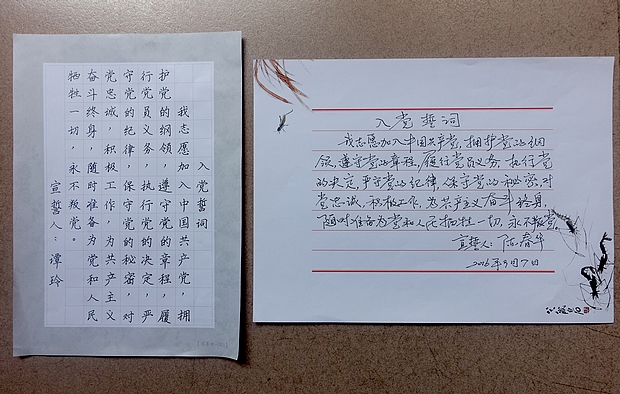 入党誓词
我志愿加入中国共产党，拥
护党的纲领，遵守党的章程，履
行党员义务，执行党的决定，严
守党的纪律，保守党的秘密，对
党忠诚，积极工作，为共产主义
奋斗终身，随时准备为党和人民
牺牲一切，永不叛党。
宣誓人：谭玲
入党誓词
我志愿加入中国共产党，拥护党的纲
领，遵守党的章程，履行党员义务，执行党
的决定，严守党的纪律，保守党的秘密，对
党忠诚，积极工作，为共产主义奋斗终身，
随时准备为党和人民牺牲一切，永不叛党。
宣誓人：陈春华
2016年5月7日